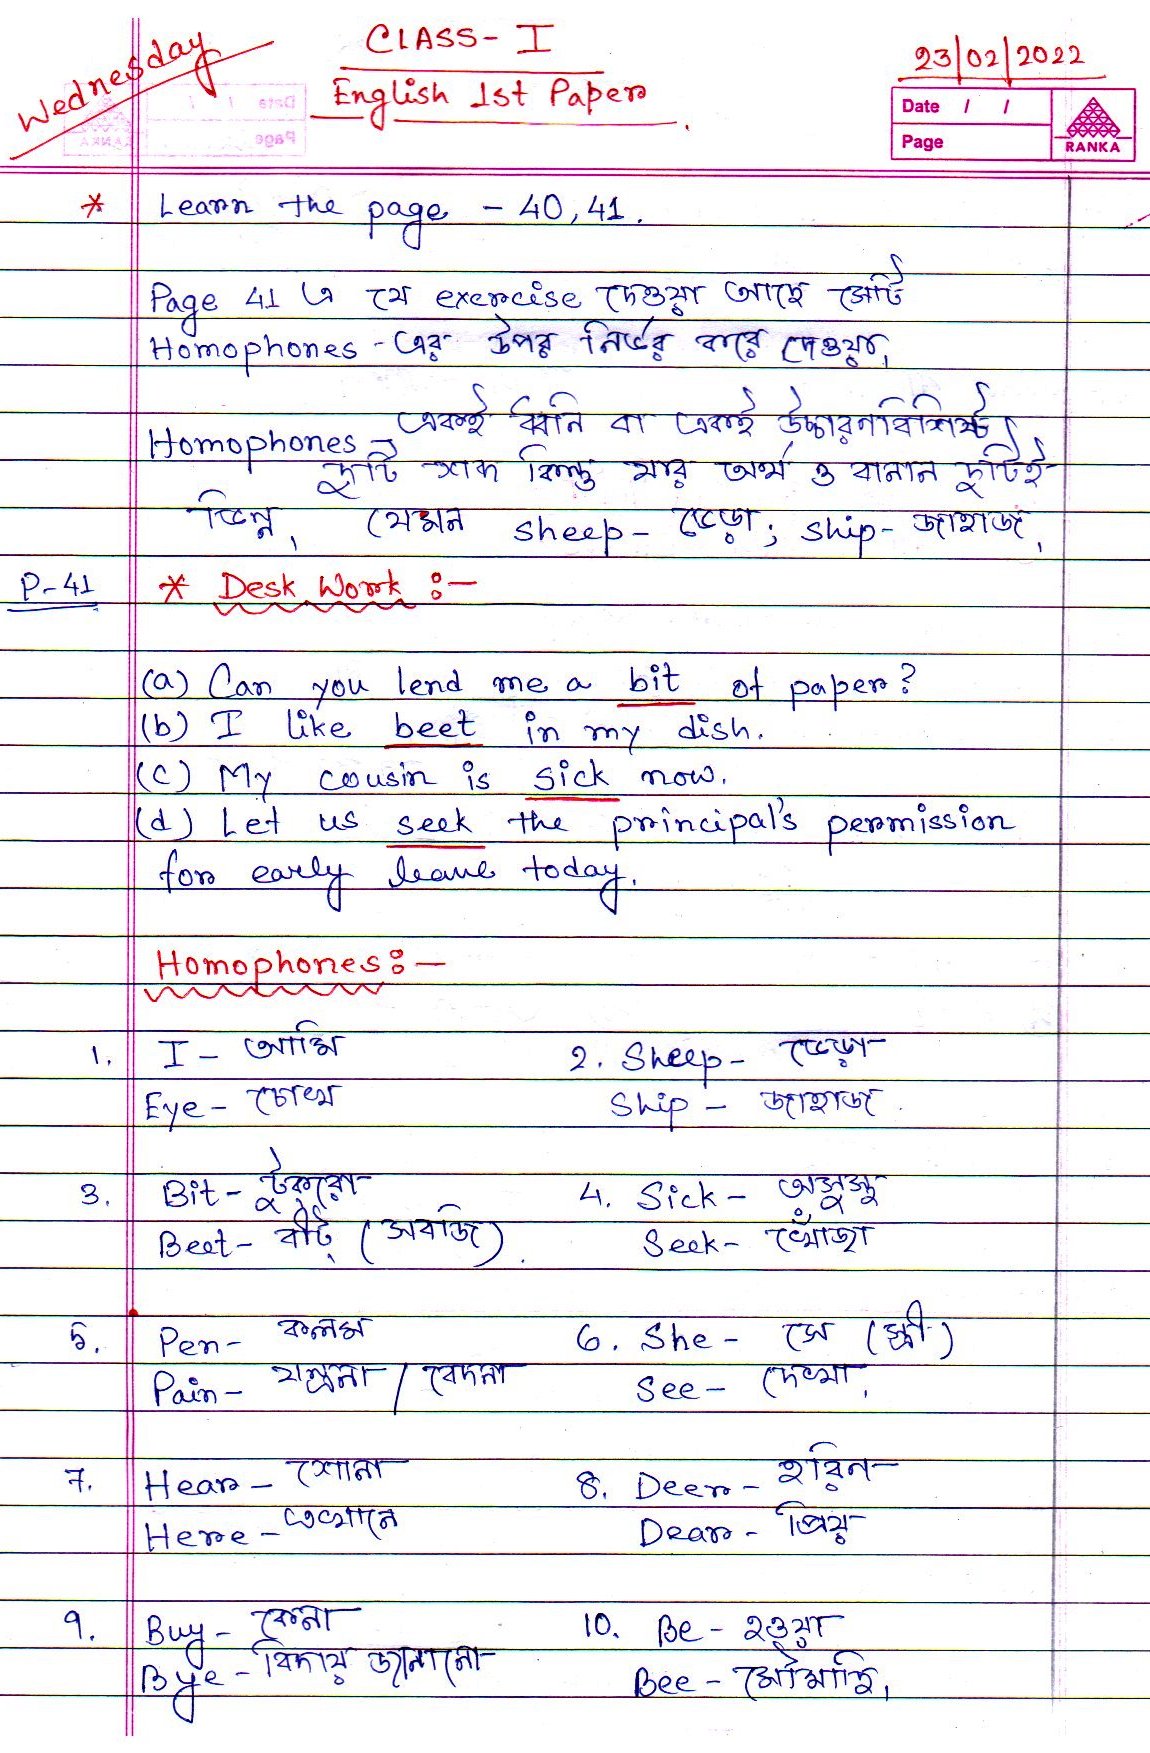 Wednesday
CLASS - I
23/02/2022
English 1st Paper
Date / /
Page
RANKA
* Learn the page - 40, 41.
Page 41 এ যে exercise দেওয়া আছে সেটি
Homophones - এর উপর নির্ভর করে দেওয়া,
Homophones - একই ধ্বনি বা একই উচ্চারণবিশিষ্ট
দুটি শব্দ কিন্তু যার অর্থ ও বানান দুটিই
ভিন্ন, যেমন sheep - ভেড়া; ship - জাহাজ,
P-41 * Desk Work :-
(a) Can you lend me a bit of paper?
(b) I like beet in my dish.
(c) My cousin is sick now.
(d) Let us seek the principal's permission
for early leave today.
Homophones :-
1. I - আমি 2. Sheep - ভেড়া
Eye - চোখ Ship - জাহাজ
3. Bit - টুকরো 4. Sick - অসুস্থ
Beet - বীট্ (সবজি). Seek - খোঁজা
5. Pen - কলম 6. She - সে (স্ত্রী)
Pain - যন্ত্রনা / বেদনা See - দেখা,
7. Hear - শোনা 8. Deer - হরিন
Here - এখানে Dear - প্রিয়
9. Buy - কেনা 10. Be - হওয়া
Bye - বিদায় জানানো Bee - মৌমাছি,